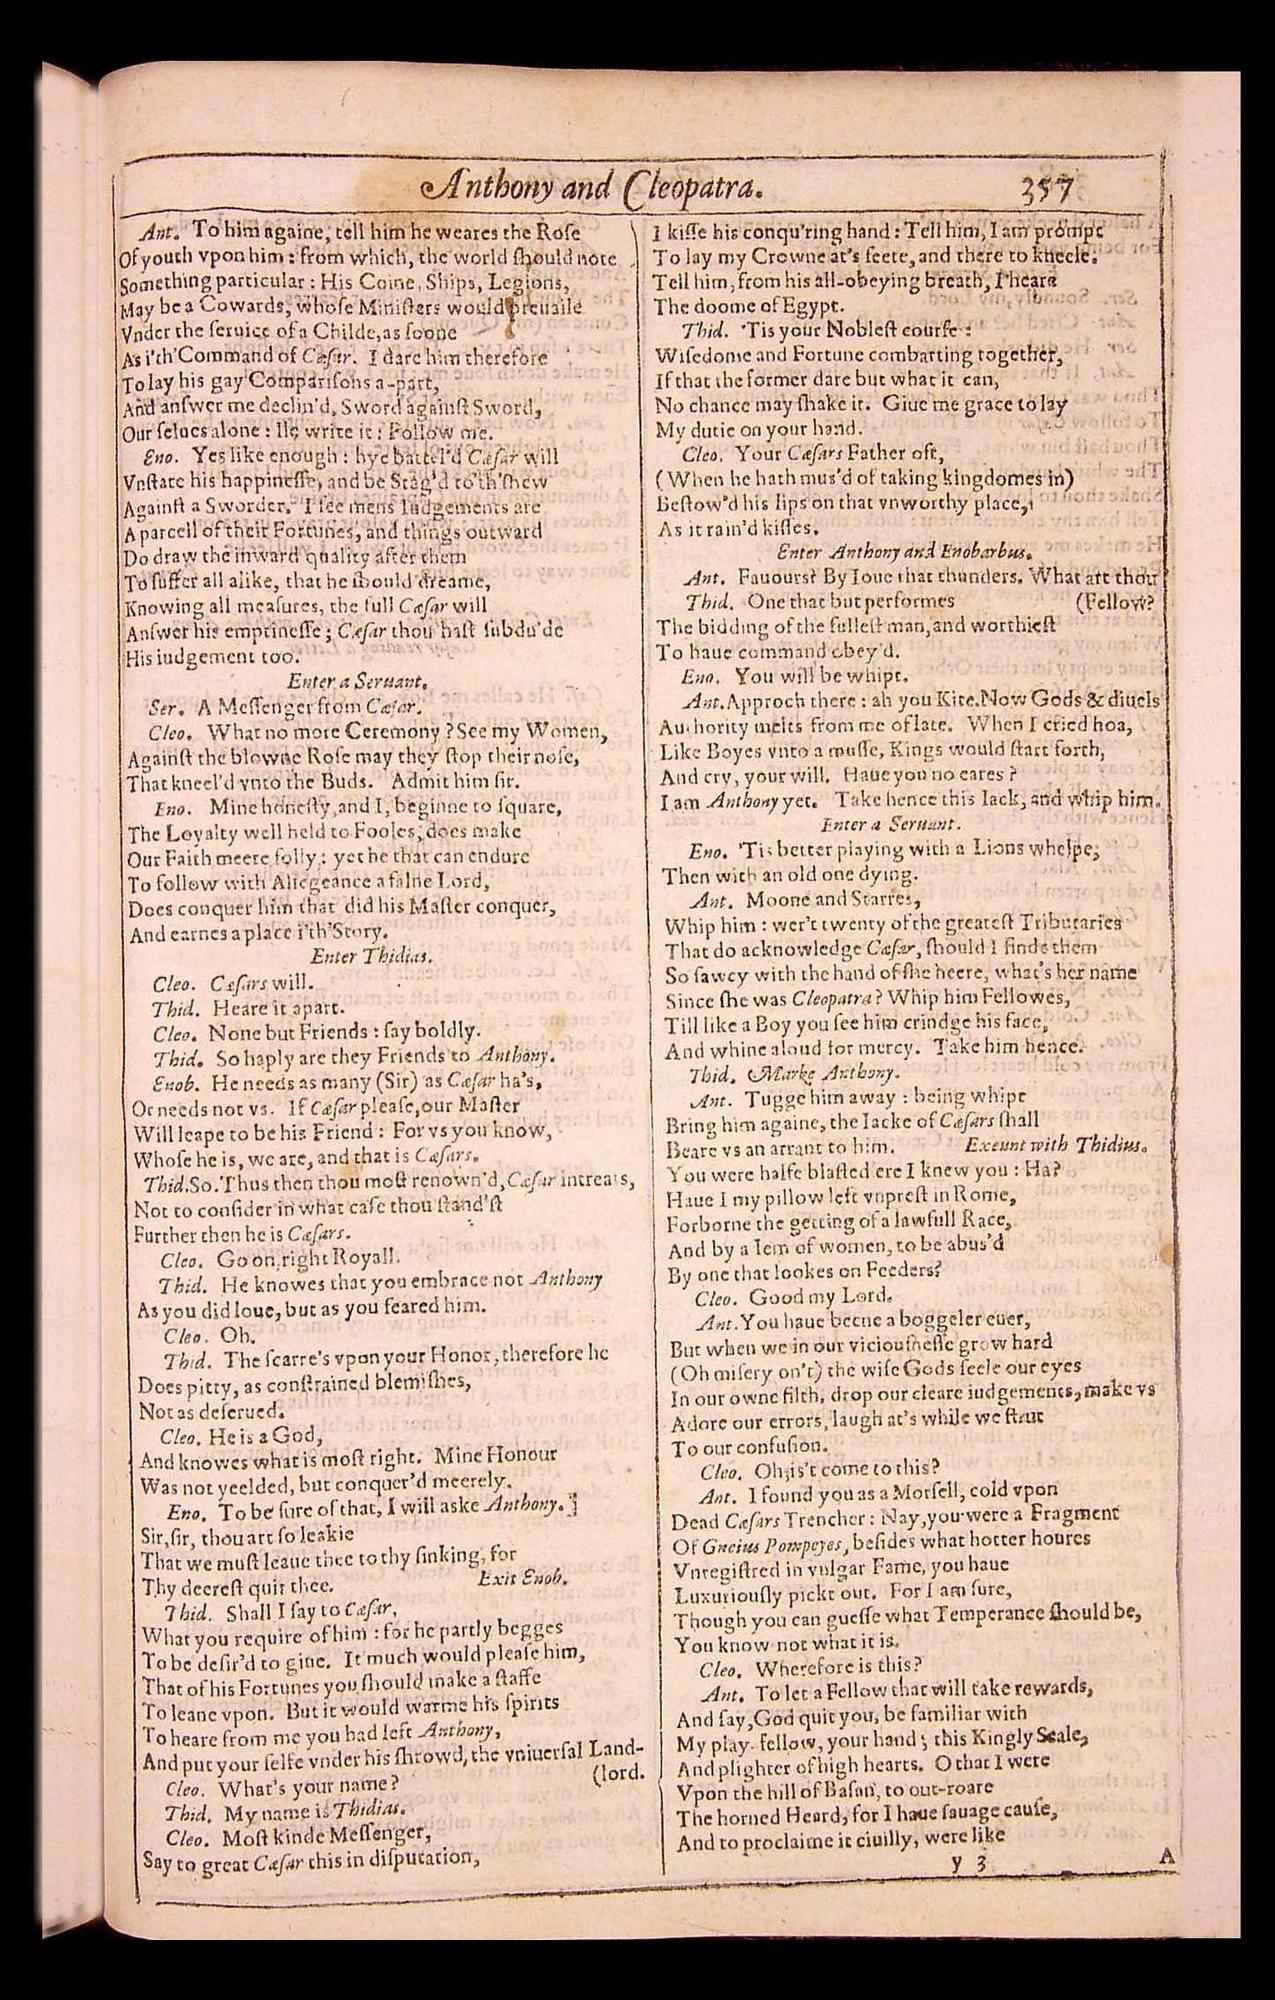 Anthony and Cleopatra. 357
Ant. To him againe, tell him he weares the Rose
Of youth vpon him: from which, the world should note
Something particular: His Coine, Ships, Legions,
May be a Cowards, whose Ministers would preuaile
Vnder the seruice of a Childe, as soone
As i'th'Command of Cæsar. I dare him therefore
To lay his gay Comparisons a-part,
And answer me declin'd, Sword against Sword,
Our selues alone: Ile write it: Follow me.
Eno. Yes like enough: hye battel'd Cæsar will
Vnstate his happinesse, and be Stag'd to th'shew
Against a Sworder. I see mens Iudgements are
A parcell of their Fortunes, and things outward
Do draw the inward quality after them
To suffer all alike, that he should dreame,
Knowing all measures, the full Cæsar will
Answer his emptinesse; Cæsar thou hast subdu'de
His iudgement too.
Enter a Seruant.
Ser. A Messenger from Cæsar.
Cleo. What no more Ceremony? See my Women,
Against the blowne Rose may they stop their nose,
That kneel'd vnto the Buds. Admit him sir.
Eno. Mine honesty, and I, beginne to square,
The Loyalty well held to Fooles, does make
Our Faith meere folly: yet he that can endure
To follow with Allegeance a falne Lord,
Does conquer him that did his Master conquer,
And earnes a place i'th'Story.
Enter Thidias.
Cleo. Cæsars will.
Thid. Heare it apart.
Cleo. None but Friends: say boldly.
Thid. So haply are they Friends to Anthony.
Enob. He needs as many (Sir) as Cæsar ha's,
Or needs not vs. If Cæsar please, our Master
Will leape to be his Friend: For vs you know,
Whose he is, we are, and that is Cæsars.
Thid. So. Thus then thou most renown'd, Cæsar intreats,
Not to consider in what case thou stand'st
Further then he is Cæsars.
Cleo. Go on, right Royall.
Thid. He knowes that you embrace not Anthony
As you did loue, but as you feared him.
Cleo. Oh.
Thid. The scarre's vpon your Honor, therefore he
Does pitty, as constrained blemishes,
Not as deserued.
Cleo. He is a God,
And knowes what is most right. Mine Honour
Was not yeelded, but conquer'd meerely.
Eno. To be sure of that, I will aske Anthony.
Sir, sir, thou art so leakie
That we must leaue thee to thy sinking, for
Thy deerest quit thee. Exit Enob.
Thid. Shall I say to Cæsar,
What you require of him: for he partly begges
To be desir'd to giue. It much would please him,
That of his Fortunes you should make a staffe
To leane vpon. But it would warme his spirits
To heare from me you had left Anthony,
And put your selfe vnder his shrowd, the vniuersal Land-
(lord.
Cleo. What's your name?
Thid. My name is Thidias.
Cleo. Most kinde Messenger,
Say to great Cæsar this in disputation,
I kisse his conqu'ring hand: Tell him, I am prompt
To lay my Crowne at's feete, and there to kneele.
Tell him, from his all-obeying breath, I heare
The doome of Egypt.
Thid. 'Tis your Noblest course:
Wisedome and Fortune combatting together,
If that the former dare but what it can,
No chance may shake it. Giue me grace to lay
My dutie on your hand.
Cleo. Your Cæsars Father oft,
(When he hath mus'd of taking kingdomes in)
Bestow'd his lips on that vnworthy place,
As it rain'd kisses.
Enter Anthony and Enobarbus.
Ant. Fauours? By Ioue that thunders. What art thou
Thid. One that but performes (Fellow?
The bidding of the fullest man, and worthiest
To haue command obey'd.
Eno. You will be whipt.
Ant. Approch there: ah you Kite. Now Gods & diuels
Authority melts from me of late. When I cried hoa,
Like Boyes vnto a musse, Kings would start forth,
And cry, your will. Haue you no eares?
I am Anthony yet. Take hence this Iack, and whip him.
Enter a Seruant.
Eno. 'Tis better playing with a Lions whelpe,
Then with an old one dying.
Ant. Moone and Starres,
Whip him: wer't twenty of the greatest Tributaries
That do acknowledge Cæsar, should I finde them
So sawcy with the hand of she heere, what's her name
Since she was Cleopatra? Whip him Fellowes,
Till like a Boy you see him crindge his face,
And whine aloud for mercy. Take him hence.
Thid. Marke Anthony.
Ant. Tugge him away: being whipt
Bring him againe, the Iacke of Cæsars shall
Beare vs an arrant to him. Exeunt with Thidius.
You were halfe blasted ere I knew you: Ha?
Haue I my pillow left vnprest in Rome,
Forborne the getting of a lawfull Race,
And by a Iem of women, to be abus'd
By one that lookes on Feeders?
Cleo. Good my Lord.
Ant. You haue beene a boggeler euer,
But when we in our viciousnesse grow hard
(Oh misery on't) the wise Gods seele our eyes
In our owne filth, drop our cleare iudgements, make vs
Adore our errors, laugh at's while we strut
To our confusion.
Cleo. Oh, is't come to this?
Ant. I found you as a Morsell, cold vpon
Dead Cæsars Trencher: Nay, you were a Fragment
Of Gneius Pompeyes, besides what hotter houres
Vnregistred in vulgar Fame, you haue
Luxuriously pickt out. For I am sure,
Though you can guesse what Temperance should be,
You know not what it is.
Cleo. Wherefore is this?
Ant. To let a Fellow that will take rewards,
And say, God quit you, be familiar with
My play-fellow, your hand; this Kingly Seale,
And plighter of high hearts. O that I were
Vpon the hill of Basan, to out-roare
The horned Heard, for I haue sauage cause,
And to proclaime it ciuilly, were like
y 3 A